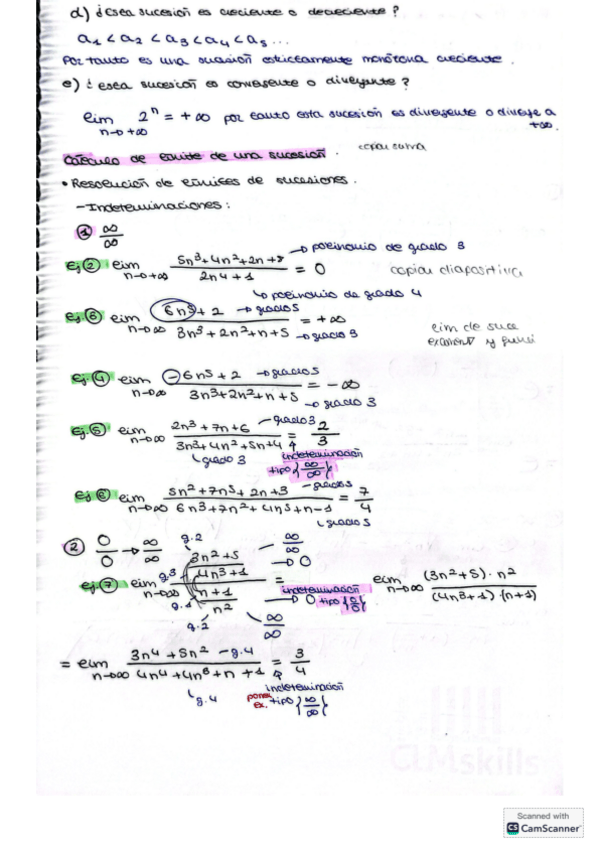 d) ¿Esea sucesión es creciente o decreciente?
a₁ < a₂ < a₃ < a₄ < a₅ ...
Por tanto es una sucesión estrictamente monótona creciente.
e) ¿esea sucesión es convergente o divergente?
lim n→+∞ 2ⁿ = +∞ por tanto esta sucesión es divergente o diverge a +∞.
Cálculo de límite de una sucesión.
• Resolución de límites de sucesiones.
- Indeterminaciones:
① ∞/∞
Ej ② lim n→+∞ (5n³+4n²+2n+8)/(2n⁴+1) = 0 → polinomio de grado 3 copiar diapositiva
↳ polinomio de grado 4
lim n→∞ (6n⁵+2)/(3n³+2n²+n+5) = +∞ → grado 5 → grado 3
lim de suce
Ej. ④ lim n→∞ (-6n⁵+2)/(3n³+2n²+n+5) = -∞ → grado 5 → grado 3
Ej. ⑤ lim n→∞ (2n³+7n+6)/(3n³+4n²+5n+4) = 2/3 - grado 3
↳ grado 3 indeterminación tipo {∞/∞}
Ej ⑥ lim n→∞ (5n²+7n⁵+2n+3)/(6n³+7n²+4n⁵+n-1) = 7/4 - grado 5
↳ grado 5
② 0/0 → ∞/∞
Ej. ⑦ lim n→∞ ((3n²+5)/(4n³+1))/((n+1)/n²) = lim n→∞ ((3n²+5)·n²)/((4n³+1)·(n+1))
g.2 g.3 g.1 g.2 ∞/∞ → 0 indeterminación → 0 tipo {0/0} ∞/∞
= lim n→∞ (3n⁴+5n²)/(4n⁴+4n³+n+1) = 3/4 - g.4
↳ g.4 poner ex. indeterminación tipo {∞/∞}
CLMskills
Scanned with
CS CamScanner